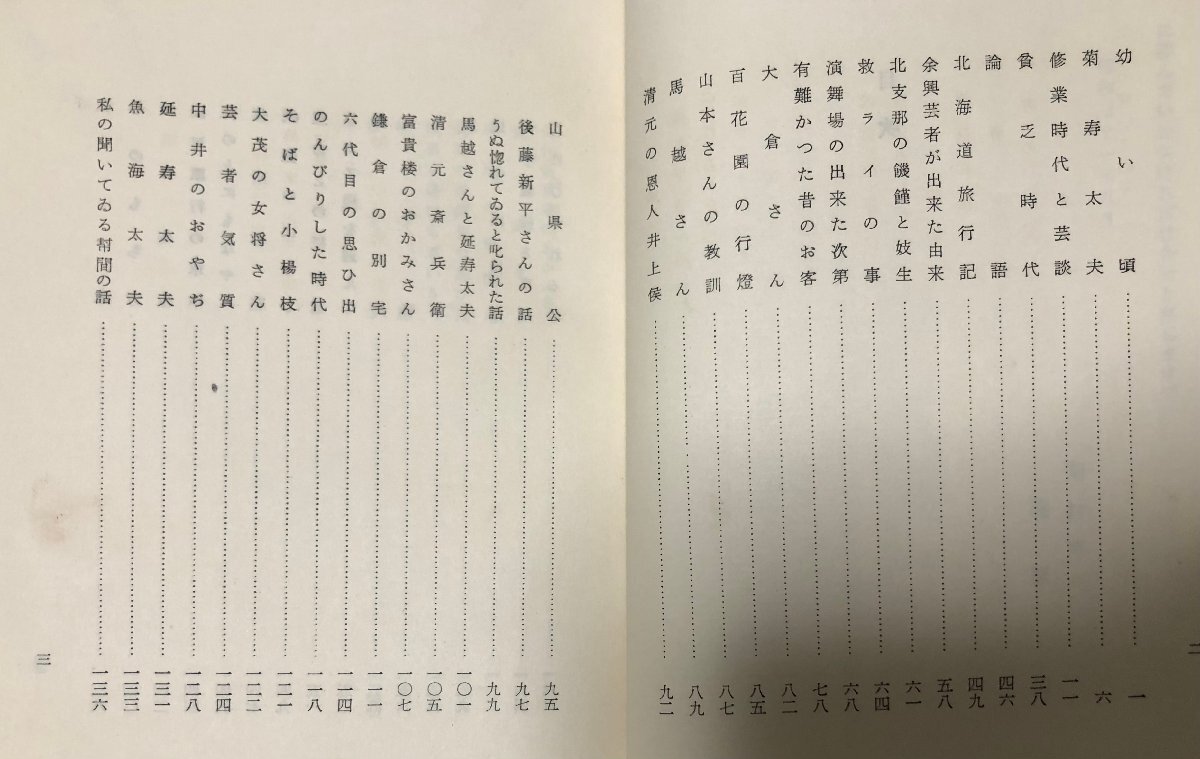 幼い頃……一
菊寿太夫……六
修業時代と芸談……一一
貧乏時代……三八
論語……四六
北海道旅行記……四九
余興芸者が出来た由来……五八
北支那の饑饉と妓生……六一
救ライの事……六四
演舞場の出来た次第……六八
有難かつた昔のお客……七八
大倉さん……八二
百花園の行燈……八五
山本さんの教訓……八七
馬越さん……八九
清元の恩人井上侯……九二
二
山県公……九五
後藤新平さんの話……九七
うぬ惚れてゐると叱られた話……九九
馬越さんと延寿太夫……一〇一
清元斎兵衛……一〇五
富貴楼のおかみさん……一〇七
鎌倉の別宅……一一一
六代目の思ひ出……一一四
のんびりした時代……一一八
そばと小楊枝……一二一
大茂の女将さん……一二二
芸者気質……一二四
中井のおやぢ……一二八
延寿太夫……一三一
魚海太夫……一三三
私の聞いてゐる幇間の話……一三六
三